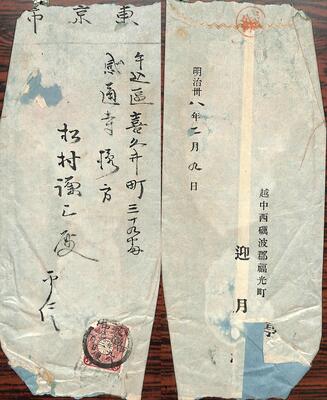 東京市
牛込區喜久井町三十九番
感通寺様方
松村謙三殿
平信
明治卅八年二月九日
越中西礪波郡福光町
迎月亭